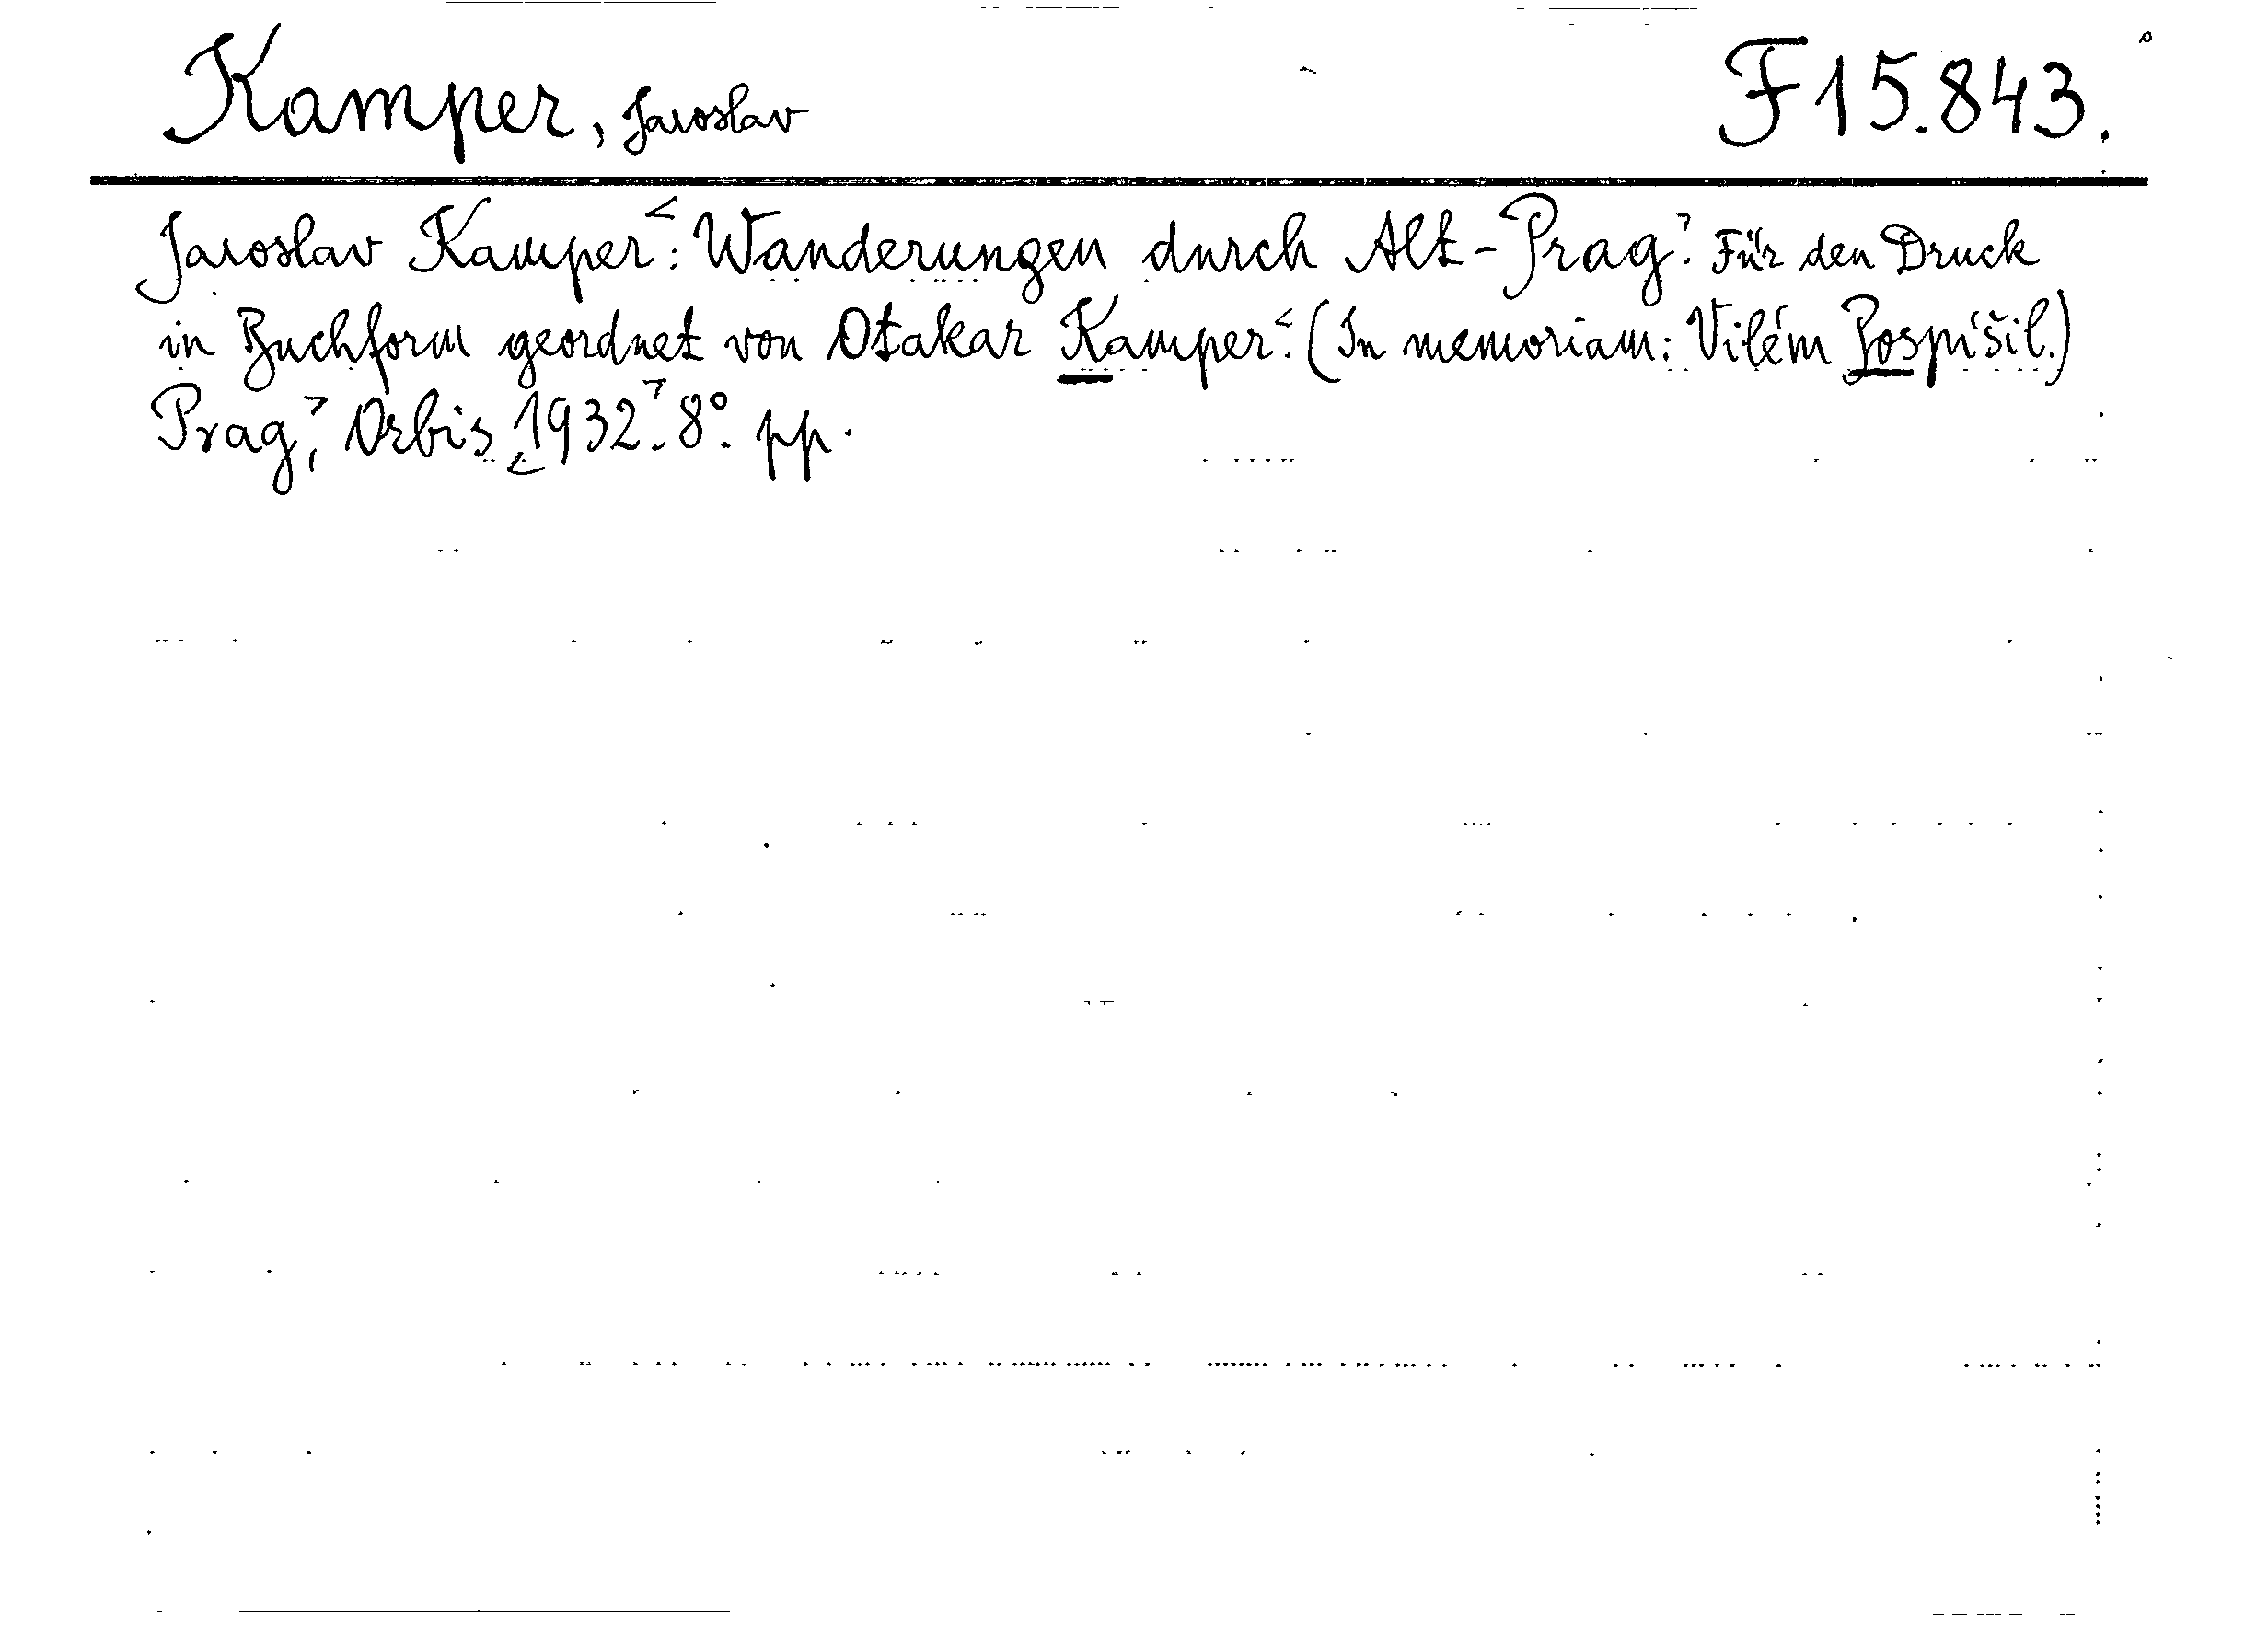 Kamper, Jaroslav F 15.843.
Jaroslav Kamper<: Wanderungen durch Alt-Prag>. Für den Druck
in Buchform geordnet von Otakar Kamper<. (In memoriam: Vilém Pospíšil.)
Prag>, Orbis <1932>. 8°. pp.